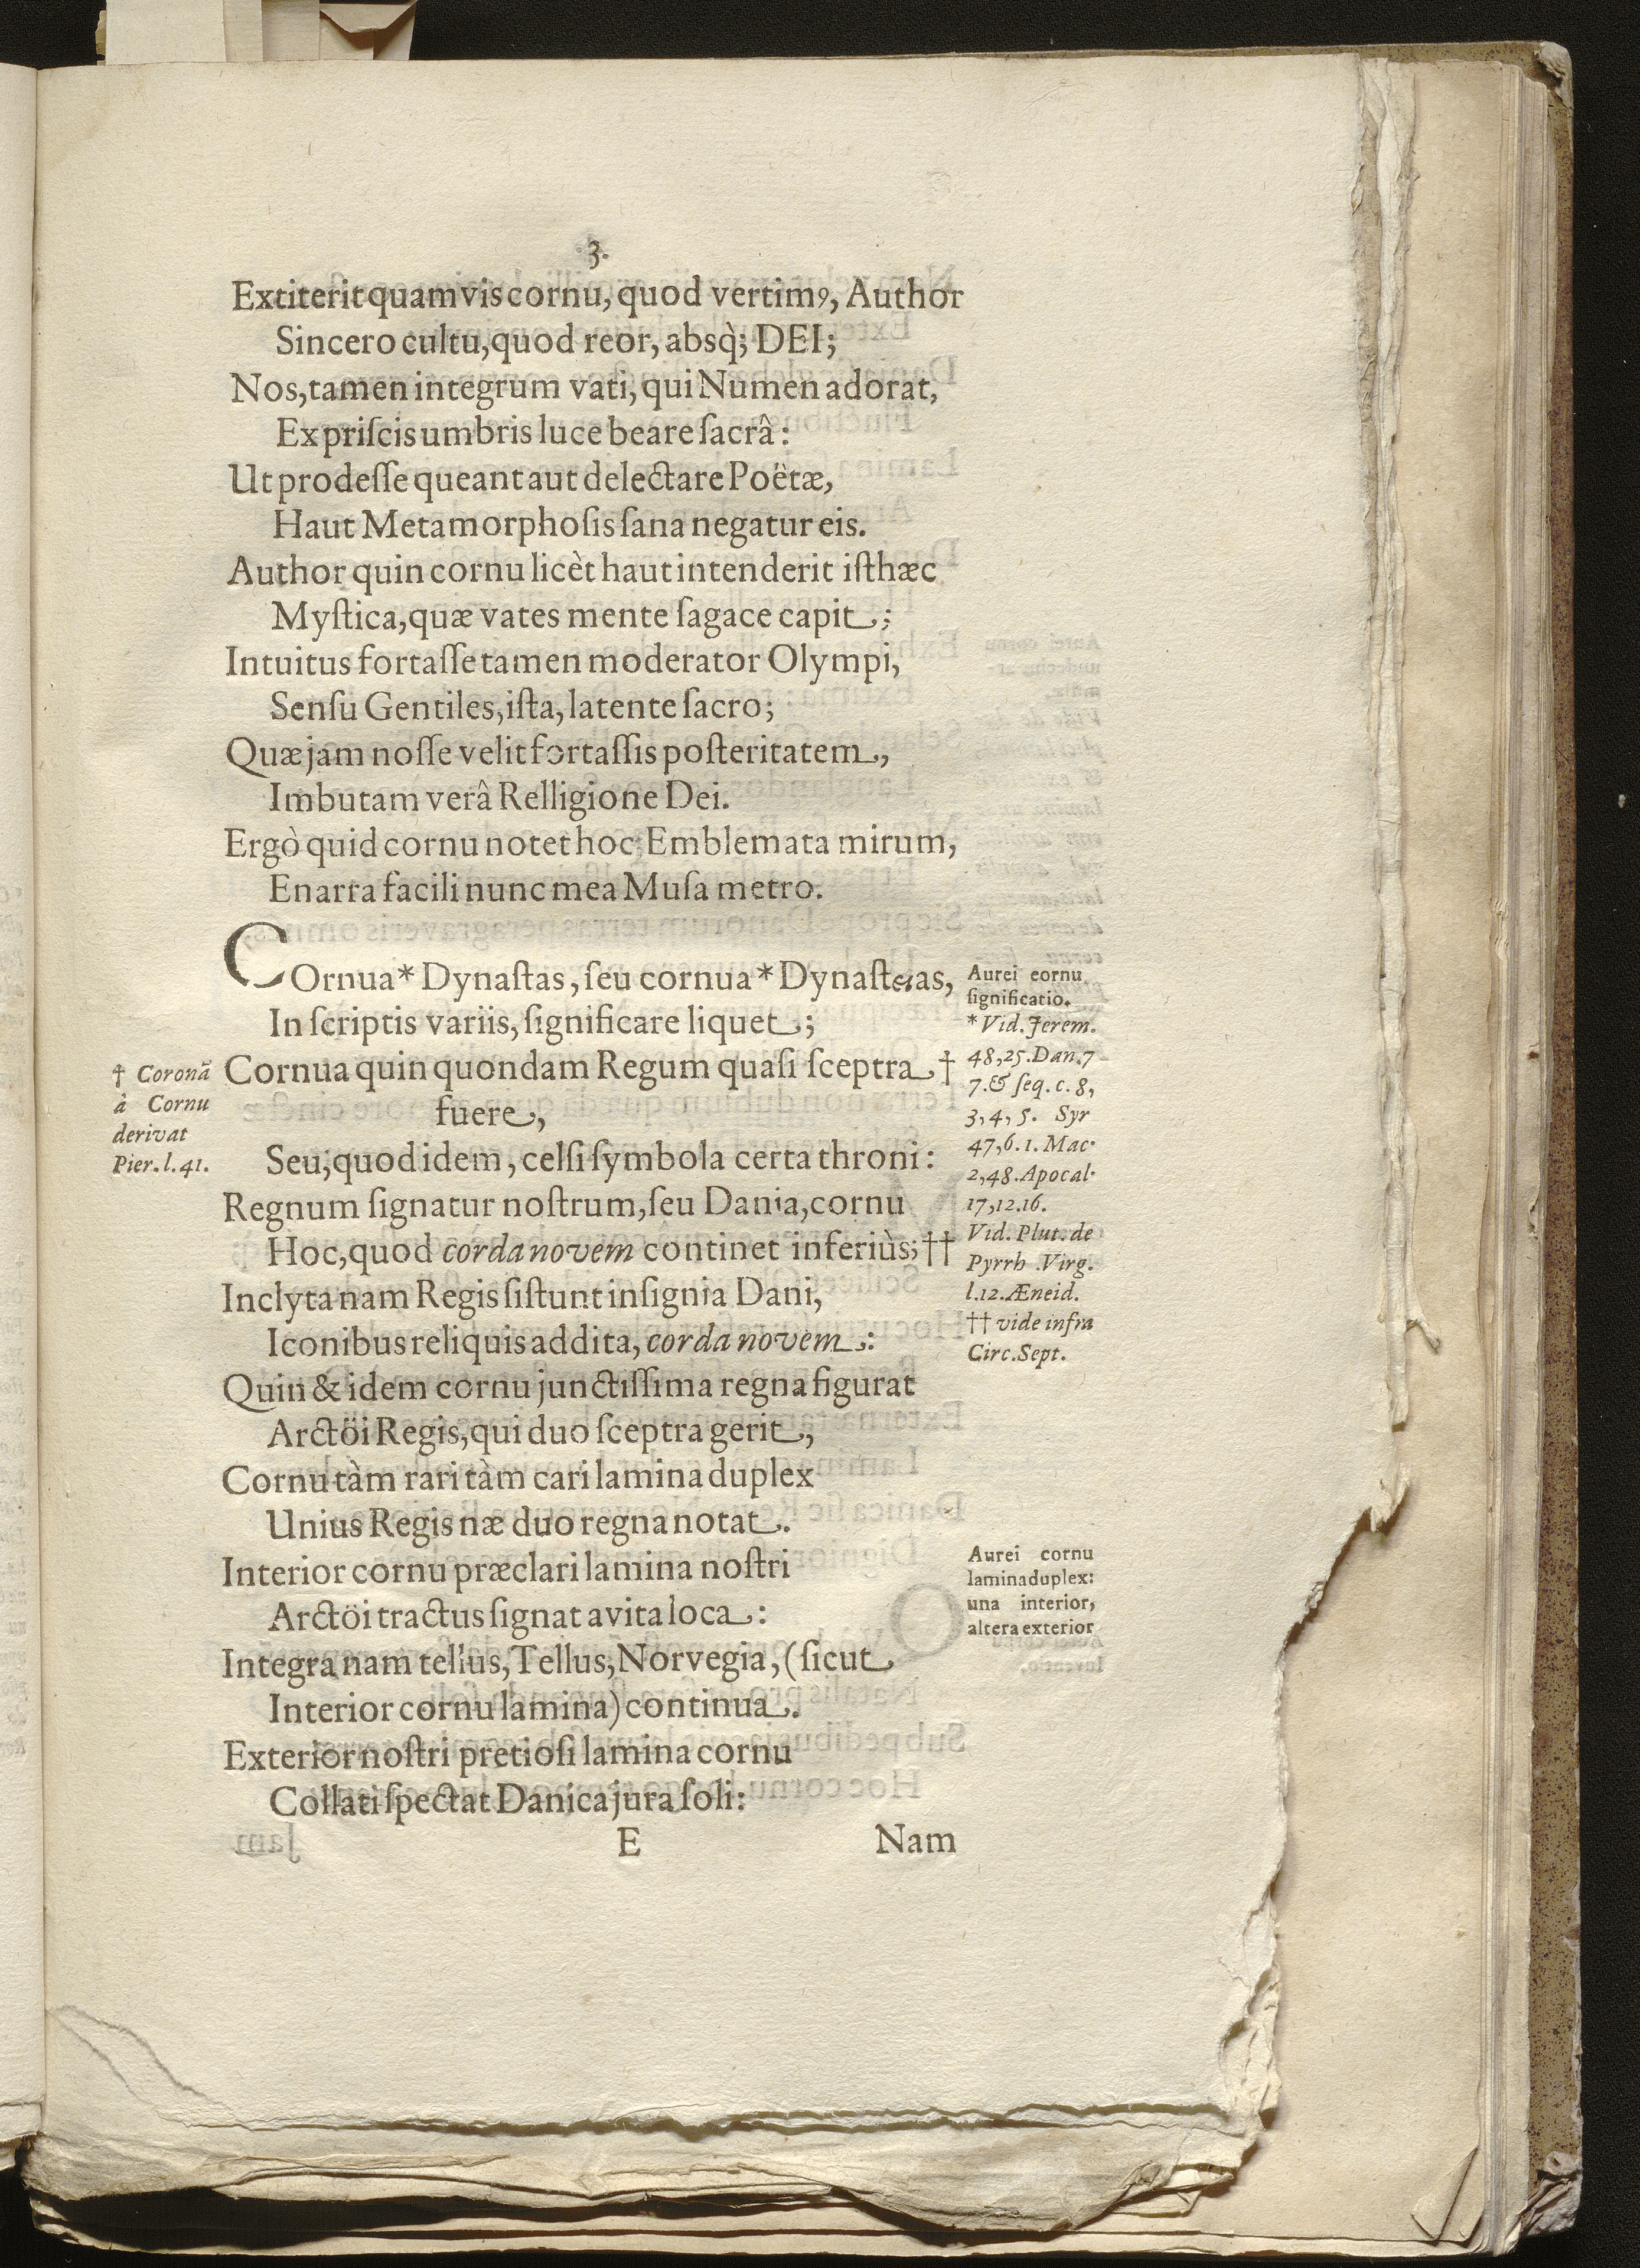 3.
Extiterit quamvis cornu, quod vertimꝰ, Author
Sincero cultu, quod reor, absq̀; DEI;
Nos, tamen integrum vati, qui Numen adorat,
Ex priſcis umbris luce beare ſacrâ:
Ut prodeſſe queant aut delectare Poëtæ,
Haut Metamorphoſis ſana negatur eis.
Author quin cornu licèt haut intenderit iſthæc
Myſtica, quæ vates mente ſagace capit;
Intuitus fortaſſe tamen moderator Olympi,
Senſu Gentiles, iſta, latente ſacro;
Quæ jam noſſe velit fortaſſis poſteritatem,
Imbutam verâ Relligione Dei.
Ergò quid cornu notet hoc Emblemata mirum,
Enarra facili nunc mea Muſa metro.
COrnua* Dynaſtas, ſeu cornua* Dynaſteias,
In ſcriptis variis, ſignificare liquet;
Cornua quin quondam Regum quaſi ſceptra †
fuere,
Seu, quod idem, celſi ſymbola certa throni:
Regnum ſignatur noſtrum, ſeu Dania, cornu
Hoc, quod corda novem continet inferiùs; ††
Inclyta nam Regis ſiſtunt inſignia Dani,
Iconibus reliquis addita, corda novem:
Quin & idem cornu junctiſſima regna figurat
Arctöi Regis, qui duo ſceptra gerit,
Cornu tàm rari tàm cari lamina duplex
Unius Regis næ duo regna notat.
Interior cornu præclari lamina noſtri
Arctöi tractus ſignat avita loca:
Integra nam tellus, Tellus, Norvegia, (ſicut
Interior cornu lamina) continua.
Exterior noſtri pretioſi lamina cornu
Collati ſpectat Danica jura ſoli:
E
Nam
† Coronā
à Cornu
derivat
Pier. l. 41.
Aurei eornu
ſignificatio.
* Vid. Jerem.
48, 25. Dan. 7
7. & ſeq. c. 8,
3, 4, 5. Syr
47, 6. 1. Mac.
2, 48. Apocal.
17, 12. 16.
Vid. Plut. de
Pyrrh. Virg.
l. 12. Æneid.
†† vide infra
Circ. Sept.
Aurei cornu
lamina duplex:
una interior,
altera exterior